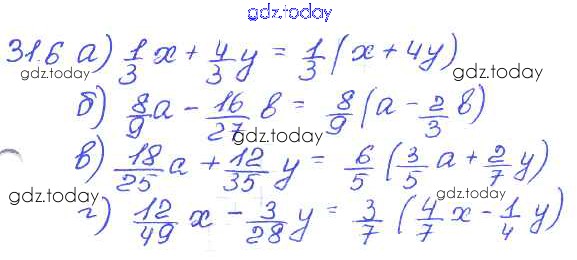 gdz.today
31.6 а) 1/3 x + 4/3 y = 1/3 (x + 4y)
gdz.today gdz.today
б) 8/9 a - 16/27 b = 8/9 (a - 2/3 b)
gdz.today
в) 18/25 a + 12/35 y = 6/5 (3/5 a + 2/7 y)
gdz.today gdz.today
г) 12/49 x - 3/28 y = 3/7 (4/7 x - 1/4 y)
gdz.today